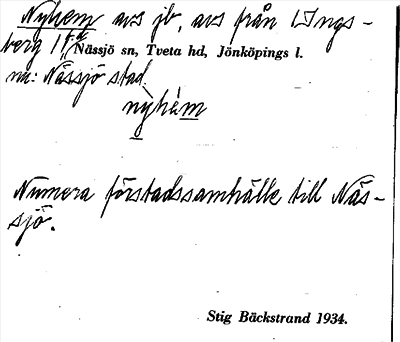 Nyhem avs jb, avs från Lings-
berg 1
Nässjö sn, Tveta hd, Jönköpings l.
nu: Nässjö stad
nyhèm
Numera förstadssamhälle till Näs-
sjö.
Stig Bäckstrand 1934.